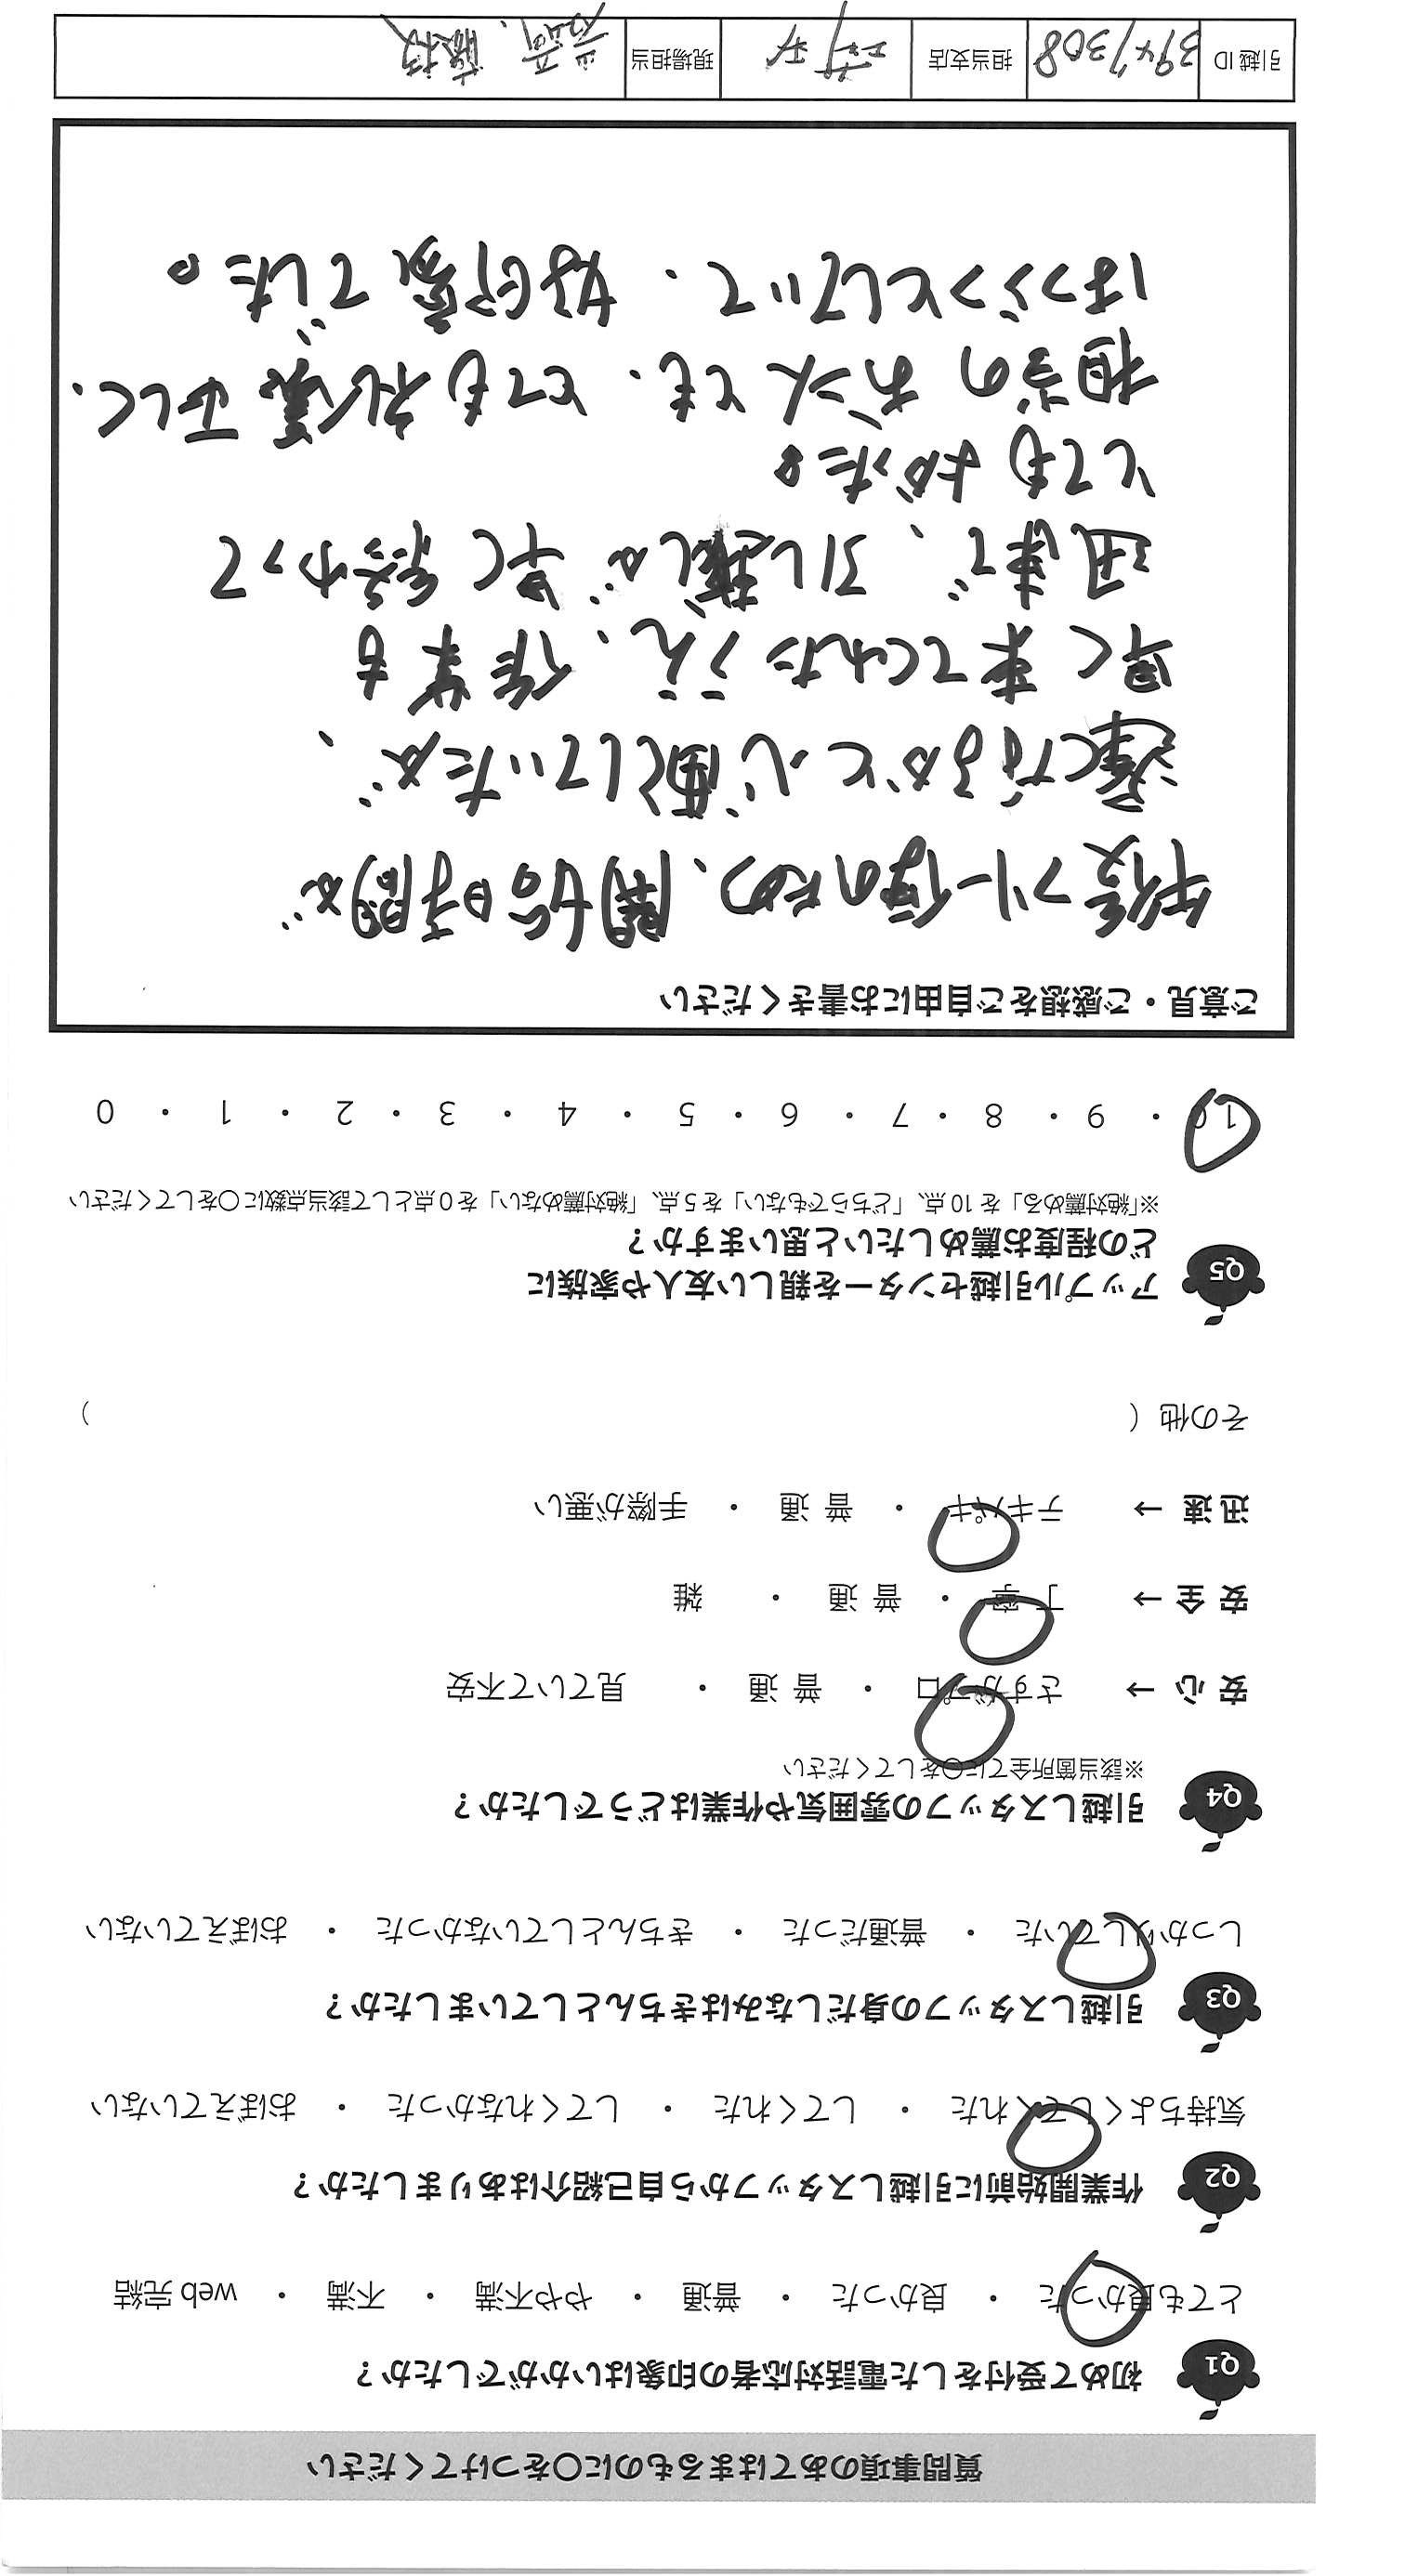 質問事項のあてはまるものに○をつけてください
Q1 初めて受付をした電話対応者の印象はいかがでしたか?
とても良かった ・ 良かった ・ 普通 ・ やや不満 ・ 不満 ・ web 完結
Q2 作業開始前に引越しスタッフから自己紹介はありましたか?
気持ちよくしてくれた ・ してくれた ・ してくれなかった ・ おぼえていない
Q3 引越しスタッフの身だしなみはきちんとしていましたか?
しっかりしていた ・ 普通だった ・ きちんとしていなかった ・ おぼえていない
Q4 引越しスタッフの雰囲気や作業はどうでしたか?
※該当箇所全てに○をしてください
安心 → さすがプロ ・ 普通 ・ 見ていて不安
安全 → 丁寧 ・ 普通 ・ 雑
迅速 → テキパキ ・ 普通 ・ 手際が悪い
その他 ( )
Q5 アップル引越センターを親しい友人や家族に
どの程度お薦めしたいと思いますか?
※「絶対薦める」を10点、「どちらでもない」を5点、「絶対薦めない」を0点として該当点数に○をしてください
10 ・ 9 ・ 8 ・ 7 ・ 6 ・ 5 ・ 4 ・ 3 ・ 2 ・ 1 ・ 0
ご意見・ご感想をご自由にお書きください
午後フリー便のため、開始時間が
遅くなるかと心配していたが、
早く来てくれたうえ、作業も
迅速で、引し越しが早く終わって
とてもよかった。
担当のお二人とも、とても礼儀正しく、
はつらつとしていて、好印象でした。
引越ID 3947308 担当支店 現場担当